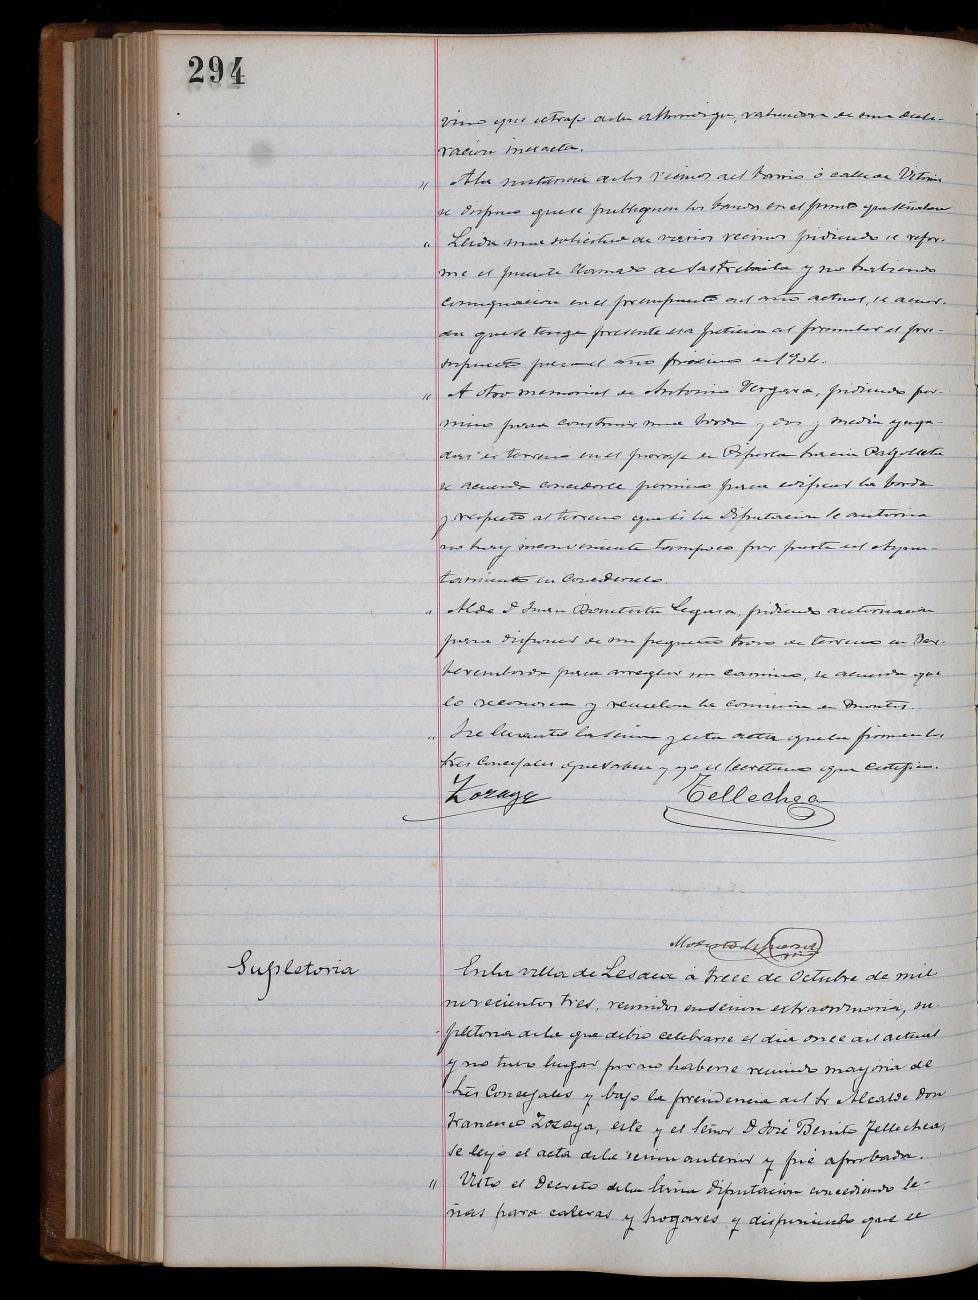 294
vino que extrajo de la alhóndiga, valiendose de una decla-
ración inexacta.
" A la instancia de los vecinos del barrio ó calle de Vitoria
se dispuso que se publiquen los bandos en el punto que señalan.
" Leida una solicitud de varios vecinos pidiendo se refor-
me el puente llamado de y no habiendo
consignacion en el presupuesto del año actual, se acuer-
da que se tenga presente esa peticion al formular el pre-
supuesto para el año próximo de 1904.
" A otro memorial de Antonio Vergara, pidiendo per-
miso para construir una borda y dos y media yuga-
das de terreno en el paraje de hacia
se acuerda concederle permiso para edificar la borda
y respecto al terreno que si la Diputacion le autoriza
no hay inconveniente tampoco por parte del Ayun-
tamiento en concederselo.
" Al de D. Juan Bautista pidiendo autorizacion
para disponer de un pequeño trozo de terreno en
para arreglar un camino, se acuerda que
lo reconozca y resuelva la comision de Montes.
" Se levantó la sesion y esta acta que la firman los
tres Concejales que saben y yo el Secretario que certifico.
Zozaya Tellechea
Supletoria
En la villa de Lesaca á trece de Octubre de mil
novecientos tres, reunidos en sesion extraordinaria, su-
pletoria de la que debio celebrarse el dia once del actual
y no tuvo lugar por no haberse reunido mayoria de
Srs Concejales y bajo la presidencia del Sr Alcalde Don
Francisco Zozaya, este y el Señor D José Benito Tellechea,
se leyó el acta de la sesion anterior y fué aprobada.
" Visto el Decreto de la Excma Diputacion concediendo le-
ñas para caleras y hogares y disponiendo que se